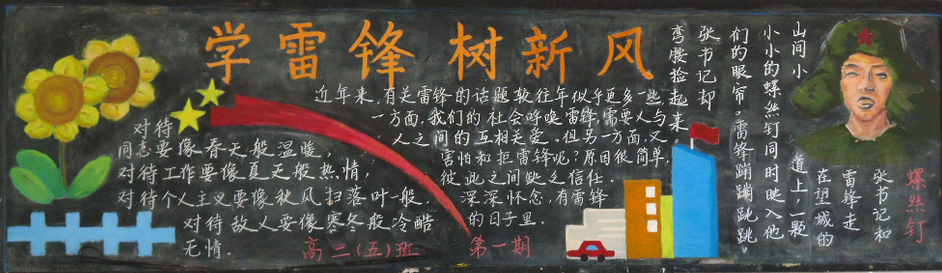 学雷锋 树新风
近年来,有关雷锋的话题较往年似乎更多一些,
一方面,我们的社会呼唤雷锋,需要人与
人之间的互相关爱。但另一方面,又
害怕和拒雷锋呢?原因很简单,
彼此之间缺乏信任。
深深怀念,有雷锋
的日子里.
对待
同志要像春天般温暖,
对待工作要像夏天般热情,
对待个人主义要像秋风扫落叶一般,
对待敌人要像寒冬般冷酷
无情.
高二(五)班
第一期
螺丝钉
张书记和
雷锋走
在望城的
道上,一颗
山间小
小小的螺丝钉同时映入他
们的眼帘。雷锋蹦蹦跳跳
张书记却
弯腰捡
起
来